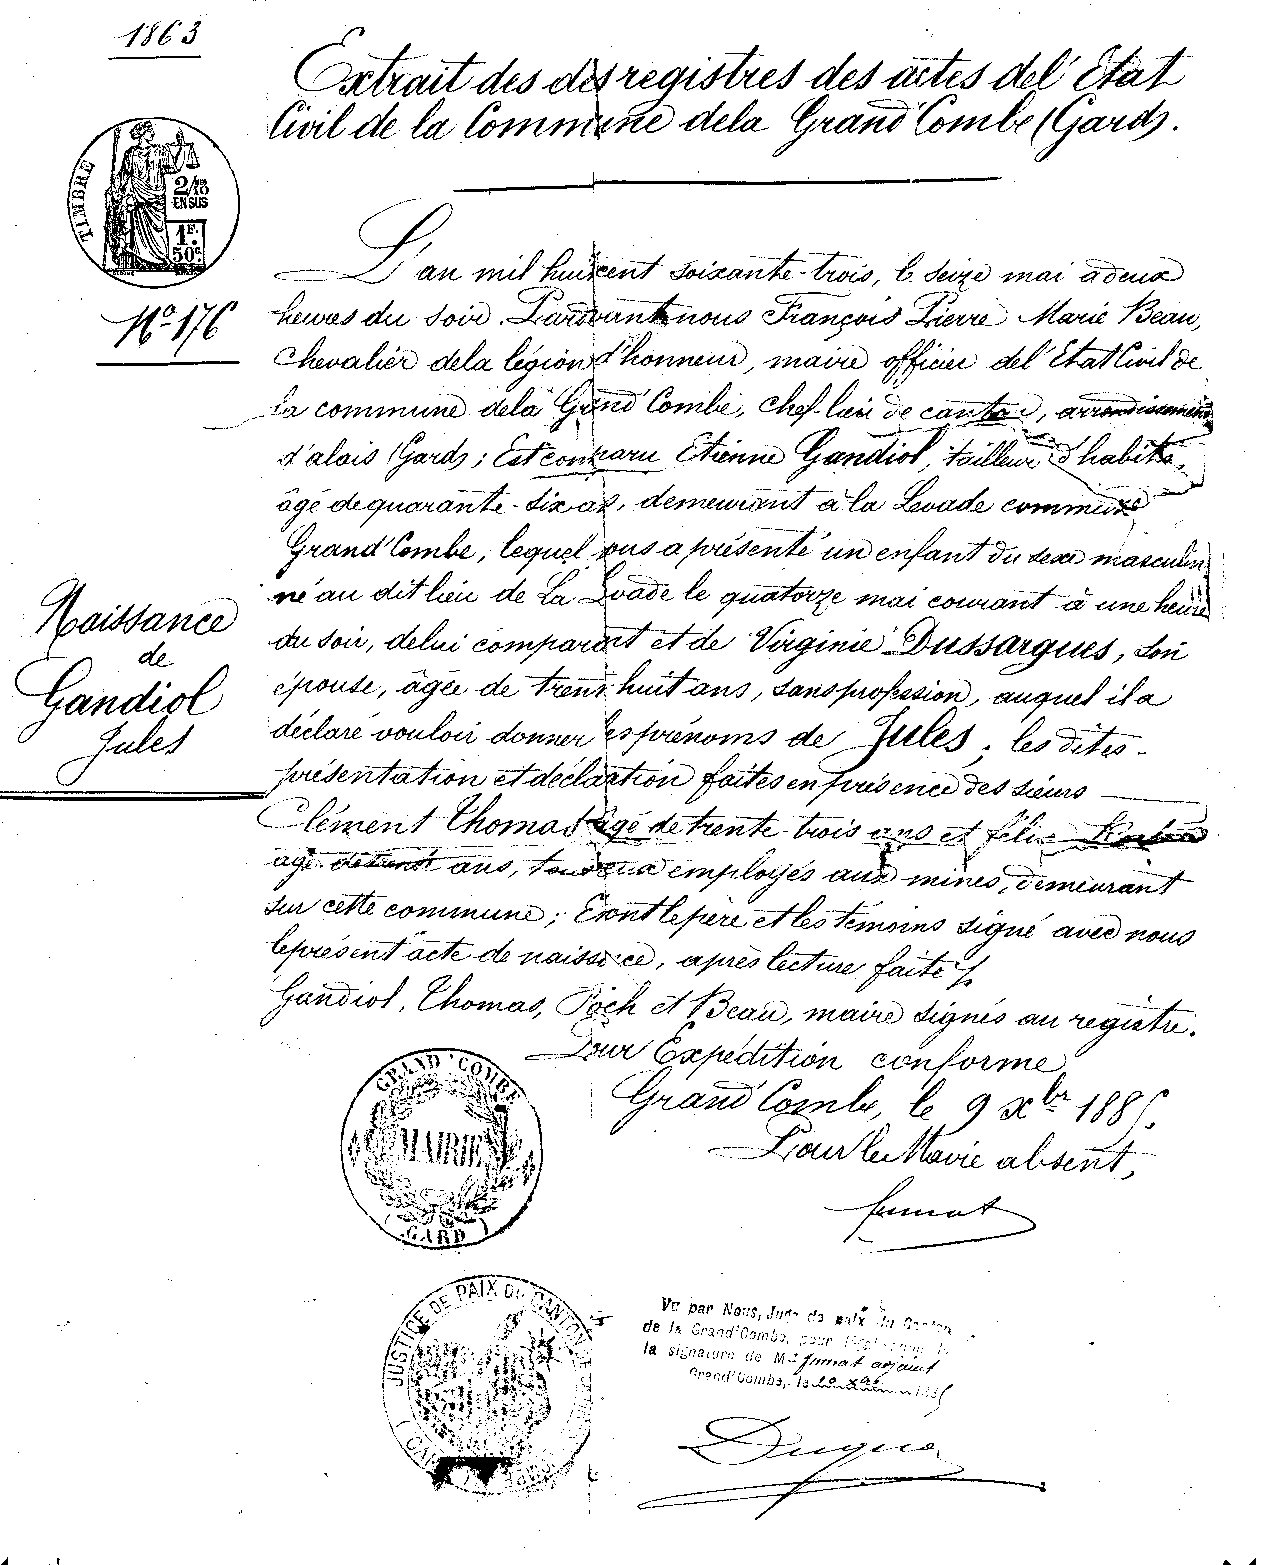 1863
Extrait des des registres des actes del'Etat
Civil de la Commune dela Grand'Combe (Gard).
TIMBRE
2/10
EN SUS
1F.
50c.
No 176
L'an mil huit cent soixante-trois, le seize mai à deux
heures du soir. Pardevant nous François Pierre Marie Beau,
Chevalier dela légion d'honneur, maire officier del'Etat Civil de
la commune dela Grand'Combe, chef-lieu de canton, arrondissement
d'alais (Gard); Est comparu Etienne Gandiol, tailleur d'habits,
âgé de quarante-six ans, demeurant à la Levade commune
Grand'Combe, lequel nous a présenté un enfant du sexe masculin
né au dit lieu de La Levade le quatorze mai courant à une heure
du soir, de lui comparant et de Virginie Dussargues, son
épouse, âgée de trente huit ans, sans profession, auquel il a
déclaré vouloir donner les prénoms de Jules; les dites
présentation et déclaration faites en présence des sieurs
Clément Thomas âgé de trente trois ans et félix
agé ans, tous deux employés aux mines, demeurant
sur cette commune; Et ont le père et les témoins signé avec nous
le présent acte de naissance, après lecture faite
Gandiol, Thomas, Poch et Beau, maire signés au registre.
Naissance
de
Gandiol
Jules
Pour Expédition conforme
Grand'Combe, le 9 Xbre 1885.
Pour le Maire absent,
fumat
GRAND'COMBE
MAIRIE
(GARD)
JUSTICE DE PAIX DU CANTON
Vu par Nous, Juge de paix du Canton
de la Grand'Combe, pour
la signature de Mr fumat adjoint
Grand'Combe, le 10 Xbre 1885